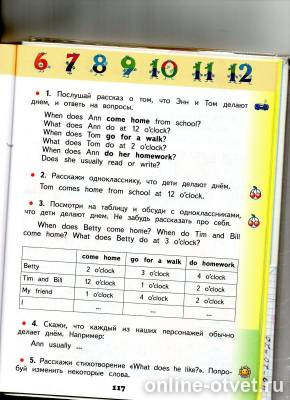 6 7 8 9 10 11 12
1. Послушай рассказ о том, что Энн и Том делают
днем, и ответь на вопросы.
When does Ann come home from school?
What does Ann do at 12 o'clock?
When does Tom go for a walk?
What does Tom do at 2 o'clock?
When does Ann do her homework?
Does she usually read or write?
2. Расскажи однокласснику, что дети делают днём.
Tom comes home from school at 12 o'clock.
3. Посмотри на таблицу и обсуди с одноклассниками,
что дети делают днём. Не забудь рассказать про себя.
When does Betty come home? When do Tim and Bill
come home? What does Betty do at 3 o'clock?
come home go for a walk do homework
Betty 2 o'clock 3 o'clock 4 o'clock
Tim and Bill 12 o'clock 1 o'clock 2 o'clock
My friend 1 o'clock 4 o'clock 2 o'clock
I ... ... ...
4. Скажи, что каждый из наших персонажей обычно
делает днём. Например:
Ann usually ...
5. Расскажи стихотворение «What does he like?». Попро-
буй изменить некоторые слова.
117
online-otvet.ru